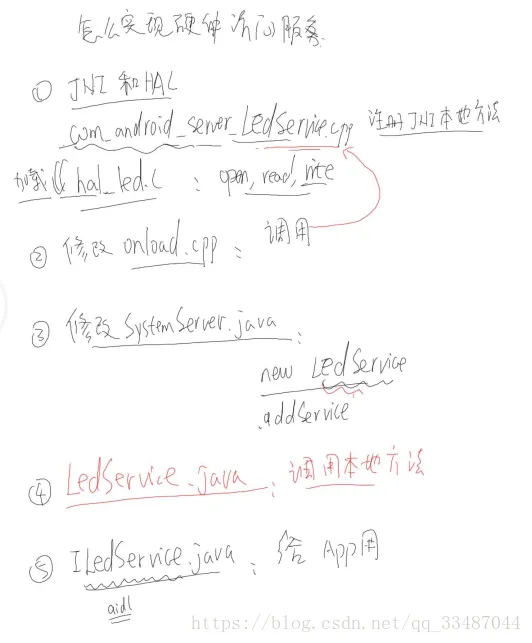 怎么实现硬件访问服务
① JNI 和 HAL
com_android_server_LedService.cpp 注册JNI本地方法
加载 hal_led.c : open, read, write
② 修改 onload.cpp : 调用
③ 修改 SystemServer.java :
new LedService
.addService
④ LedService.java : 调用本地方法
⑤ ILedService.java : 给 App用
aidl
https://blog.csdn.net/qq_33487044